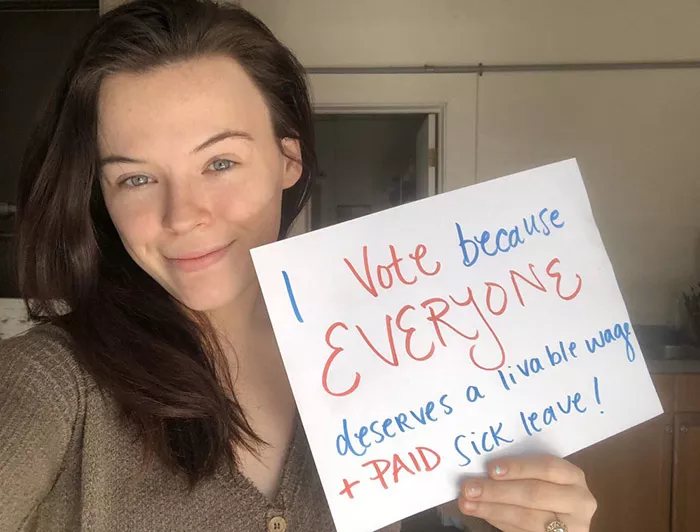 I Vote because
EVERYONE
deserves a livable wage
+ PAID sick leave!